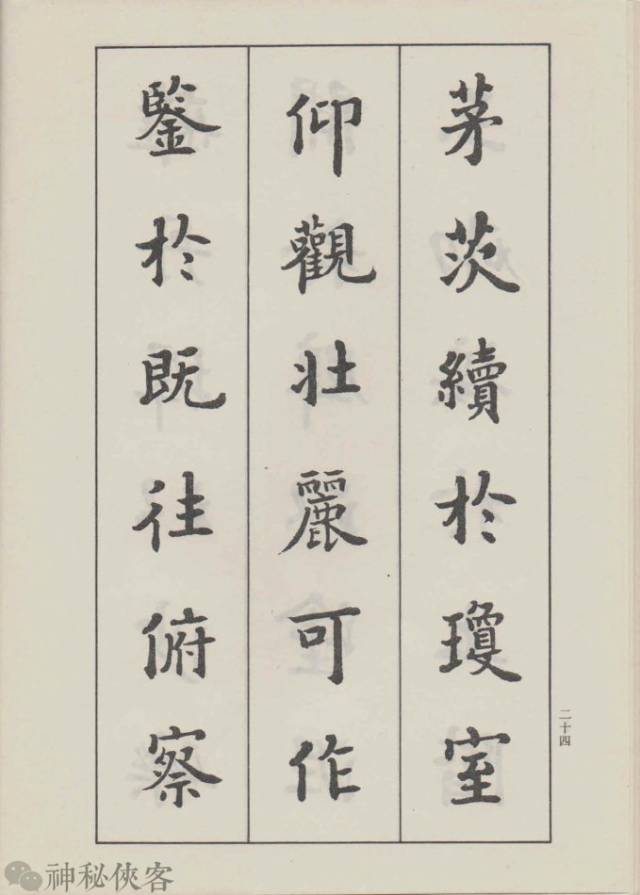 茅茨續於瓊室
仰觀壯麗可作
鑒於既往俯察
二十四
神秘俠客